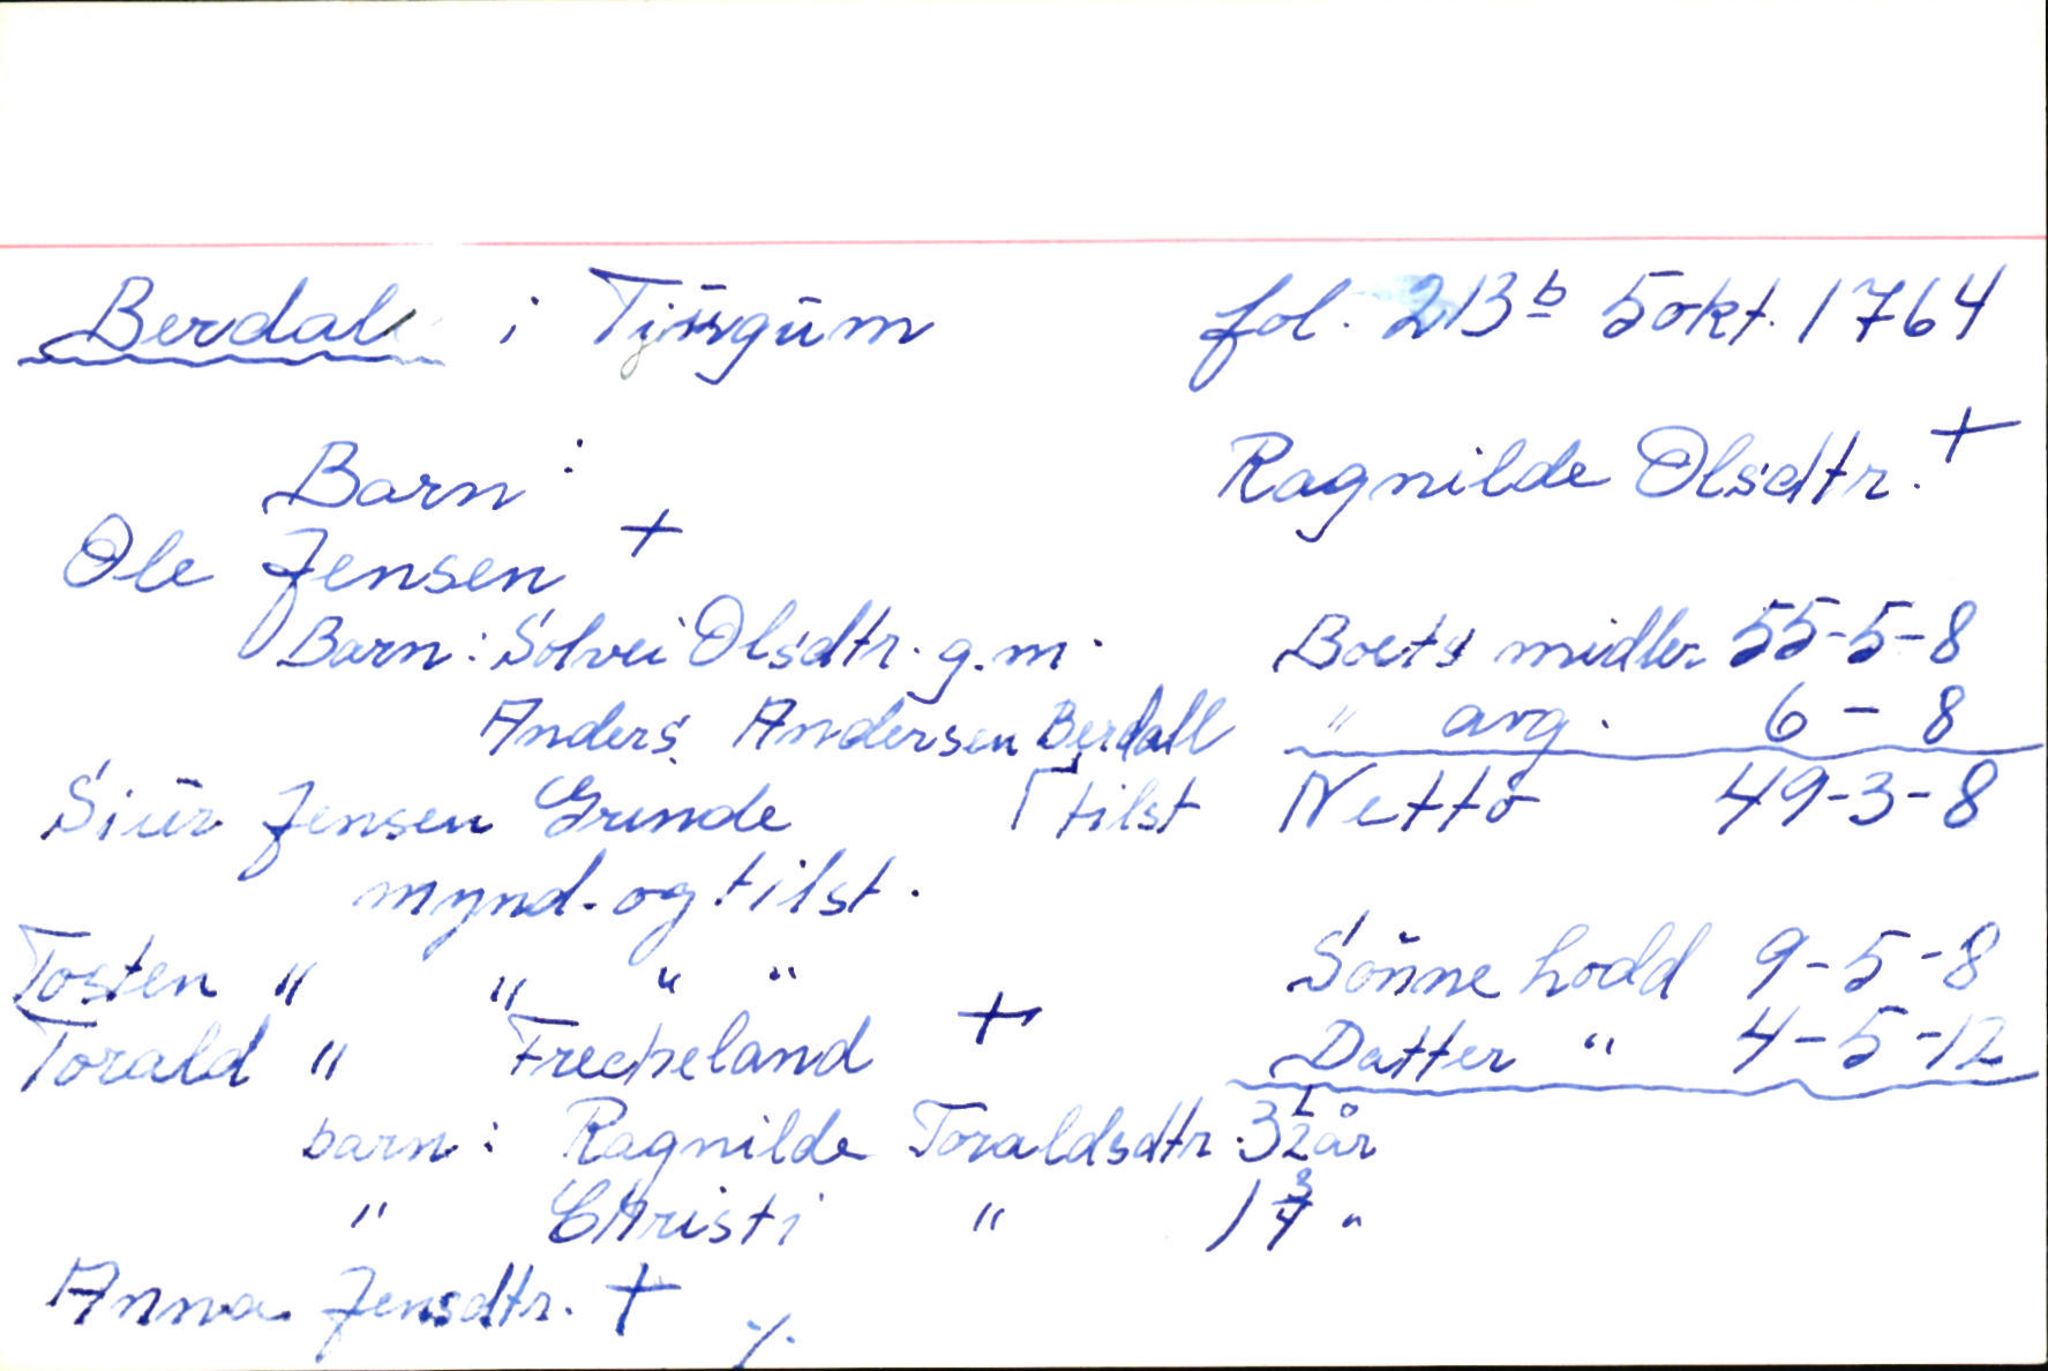 Berdal i Tjügum fol. 213b 5 okt. 1764
Barn: Ragnilde Olsdtr. +
Ole Jensen +
Barn: Solvei Olsdtr. g.m. Boets midler 55-5-8
Anders Andersen Berdall " avg. 6 - 8
Siūr Jensen Grinde tilst Netto 49-3-8
mynd. og tilst.
Tosten " " " " Sönne lodd 9-5-8
Torald " Frecheland + Datter " 4-5-12
barn: Ragnilde Toraldsdtr. 3 1/2 år
" Christi " 1 3/4 "
Anna Jensdtr. + ./.